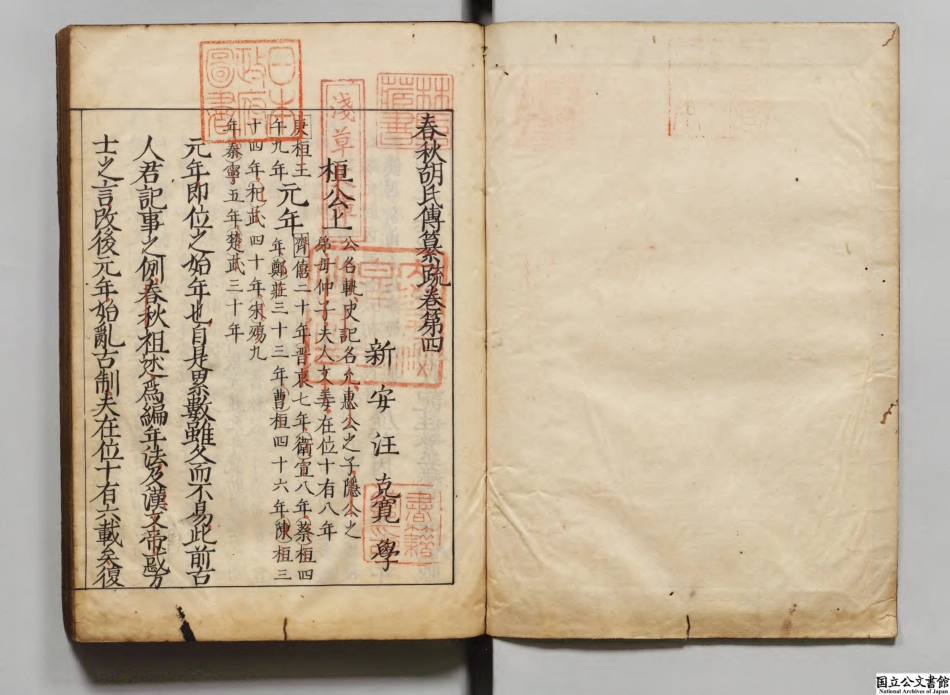 春秋胡氏傳纂疏卷第四
新安汪克寬學
桓公上
公名軌史記名允惠公之子隱公之
弟母仲子夫人文姜在位十有八年
庚桓王
午九年
元年
齊僖二十年晉哀七年衛宣八年蔡桓四
年鄭莊三十三年曹桓四十六年陳桓三
十四年杞武四十年宋殤九
年秦寧五年楚武三十年
元年即位之始年也自是累數雖久而不易此前古
人君記事之例春秋祖述爲編年法及漢文帝惑方
士之言改後元年始亂古制夫在位十有六載矣復
日本
政府
圖書
淺草文庫
林氏
藏書
書籍
国立公文書館
National Archives of Japan